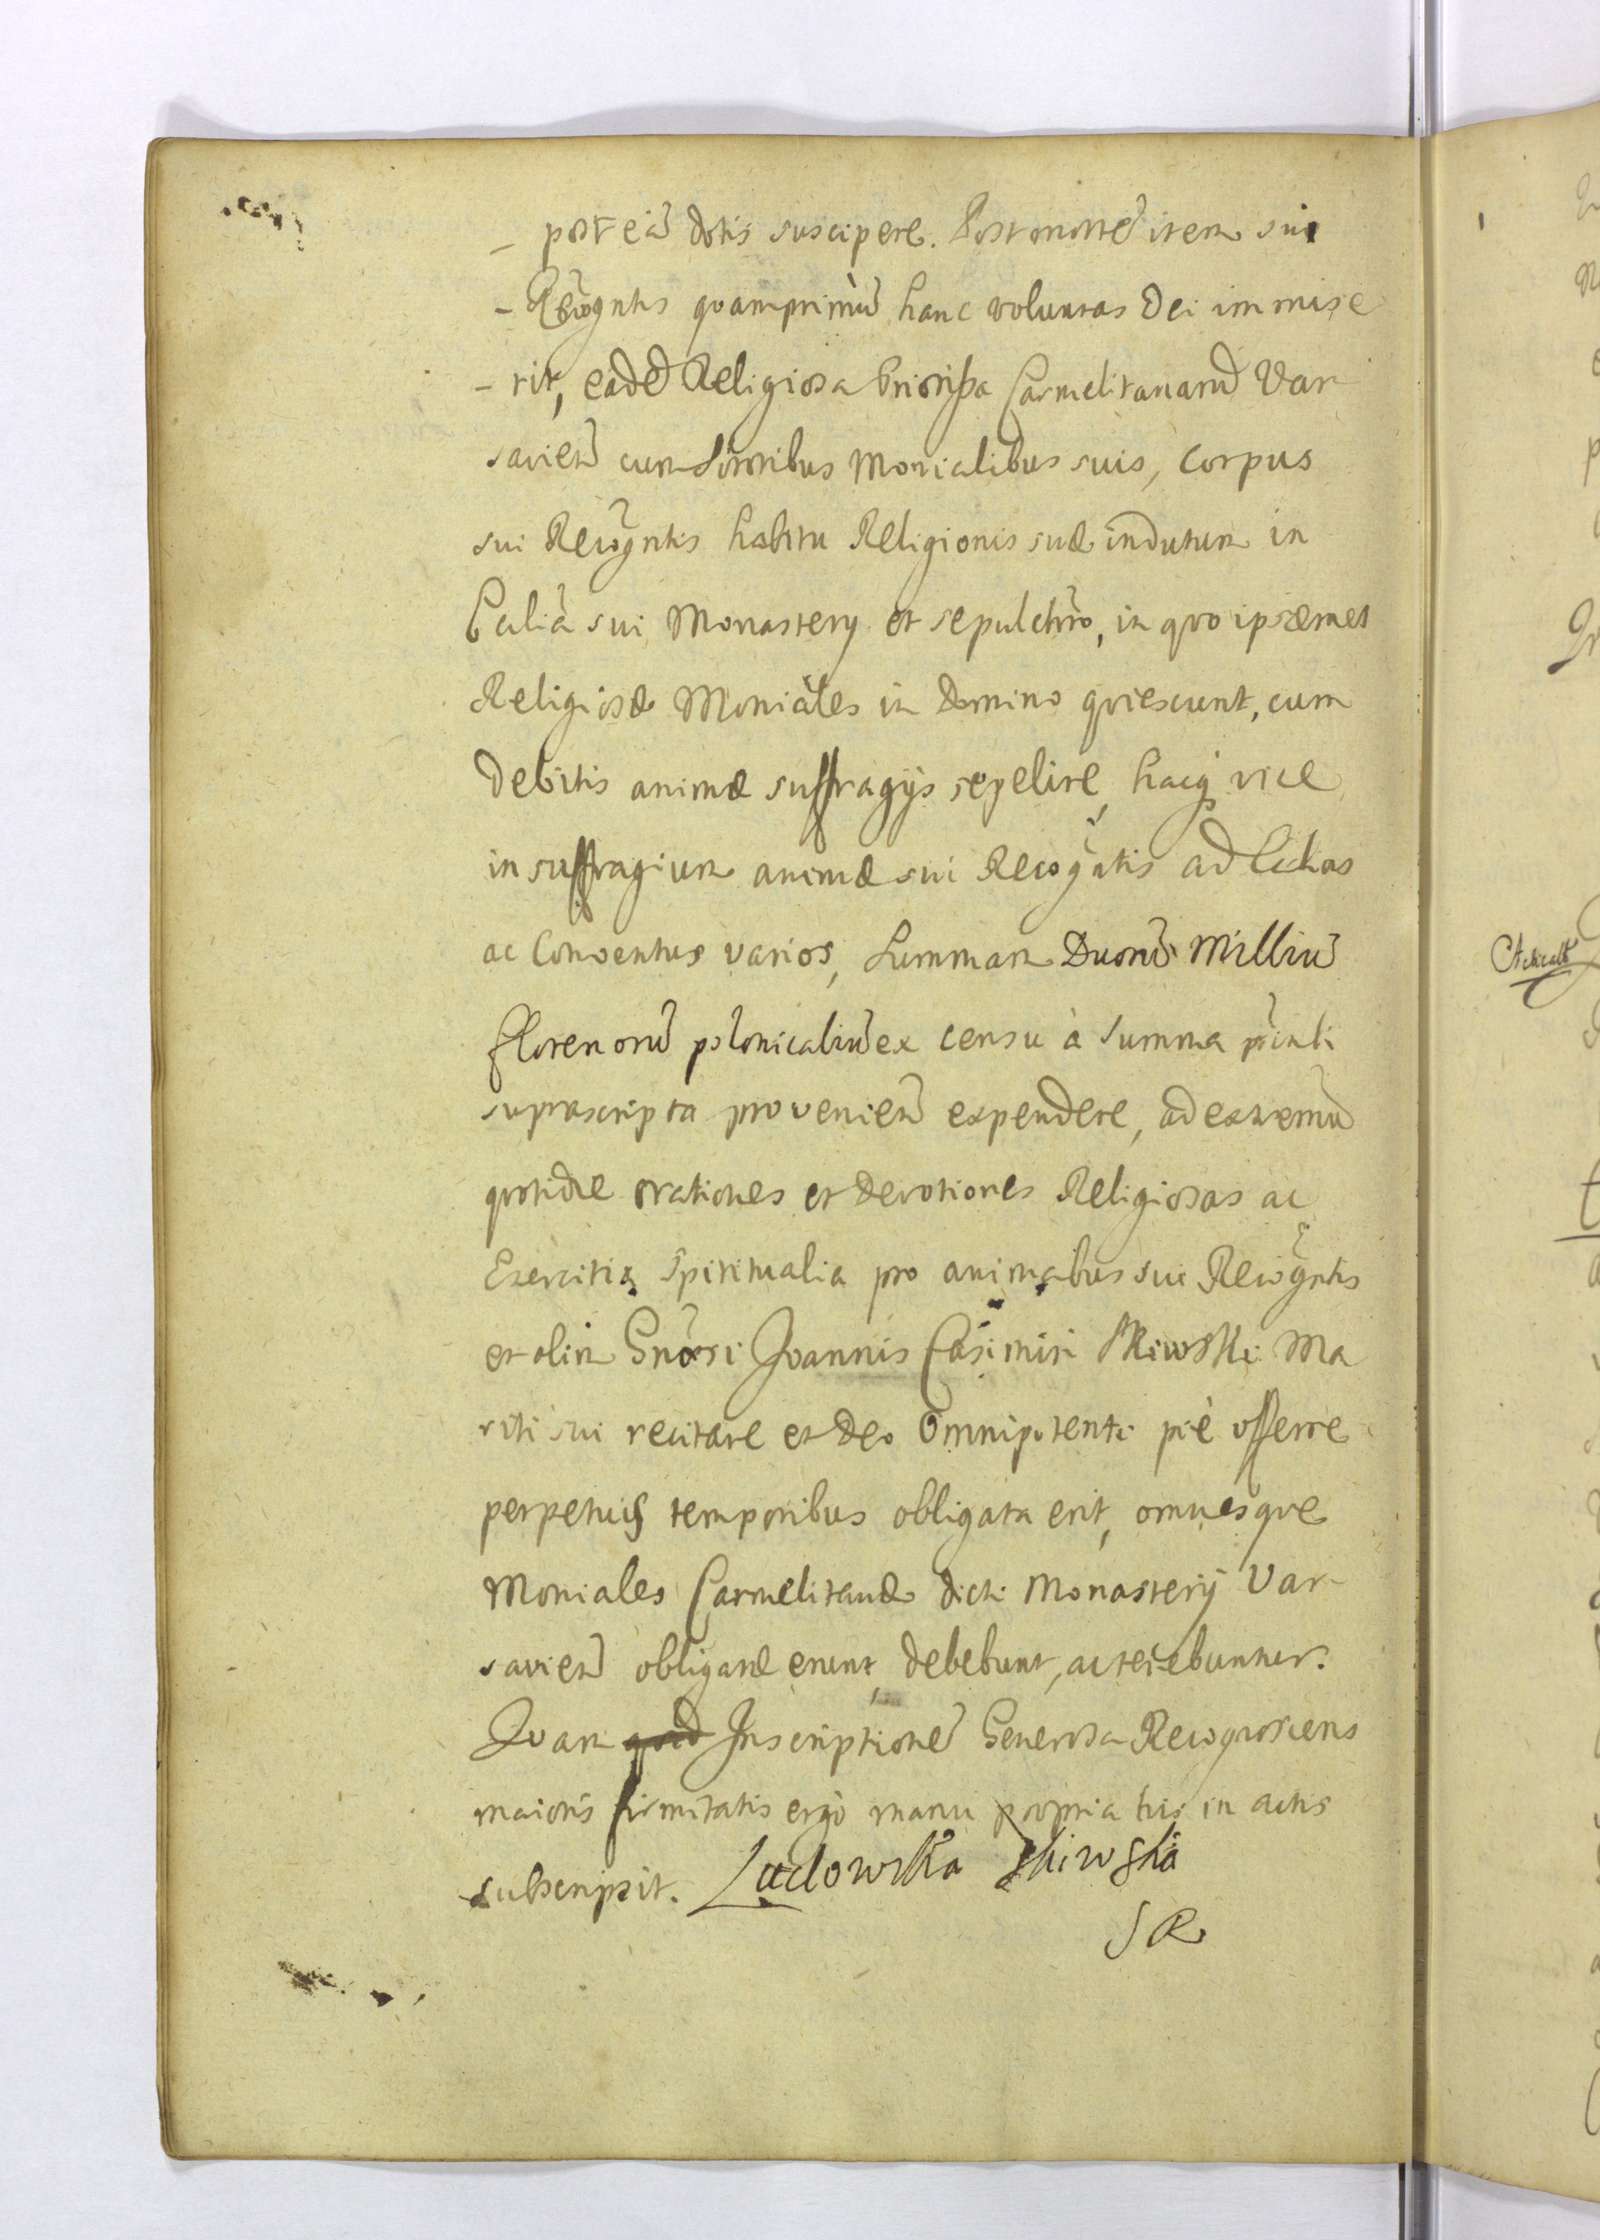 - post eiā dotis suscipere. Post mortē item sui
- Recōgntis quamprimū hanc voluntas Dei immise
- rit, eadē Religiosa Priorissa Carmelitanarū Var
savien cum Sororibus Monialibus suis, corpus
sui Recōgntis habitu Religionis suæ indutum in
Ecclīa sui Monastery et sepulchro, in quo ipsæmet
Religiosæ Moniales in Domino quiescunt, cum
debitis animæ suffragijs sepelire, hacq̨ vice
in suffragium animæ sui Recōgntis ad Ecclias
ac Conventus varios, Summam Duorū Milliū
florenorū polonicaliū ex censu à Summa
suprascripta provenien expendere, ad extremū
quotidie orationes et devotiones Religiosas ac
Exercitia Spiritualia pro animabus sui Recōgntis
et olim Gnōrsi Joannis Casimiri Skiwski Ma
riti sui recitare et Deo Omnipotenti piè offerre
perpetuis temporibus obligata erit, omnesque
Moniales Carmelitanæ dicti Monasterij Var-
savien obligatæ erunt, debebunt, ac tenebuntur.
Quam quid Inscriptionē Generosa Recognoscens
maioris firmitatis ergò manu propria his in actis
subscripsit. Ludowika Skiwska
SR
Acticatō